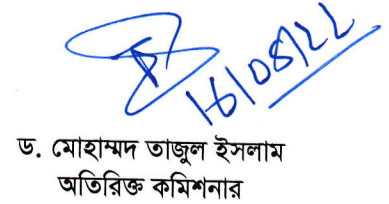 16/08/22
ড. মোহাম্মদ তাজুল ইসলাম
অতিরিক্ত কমিশনার